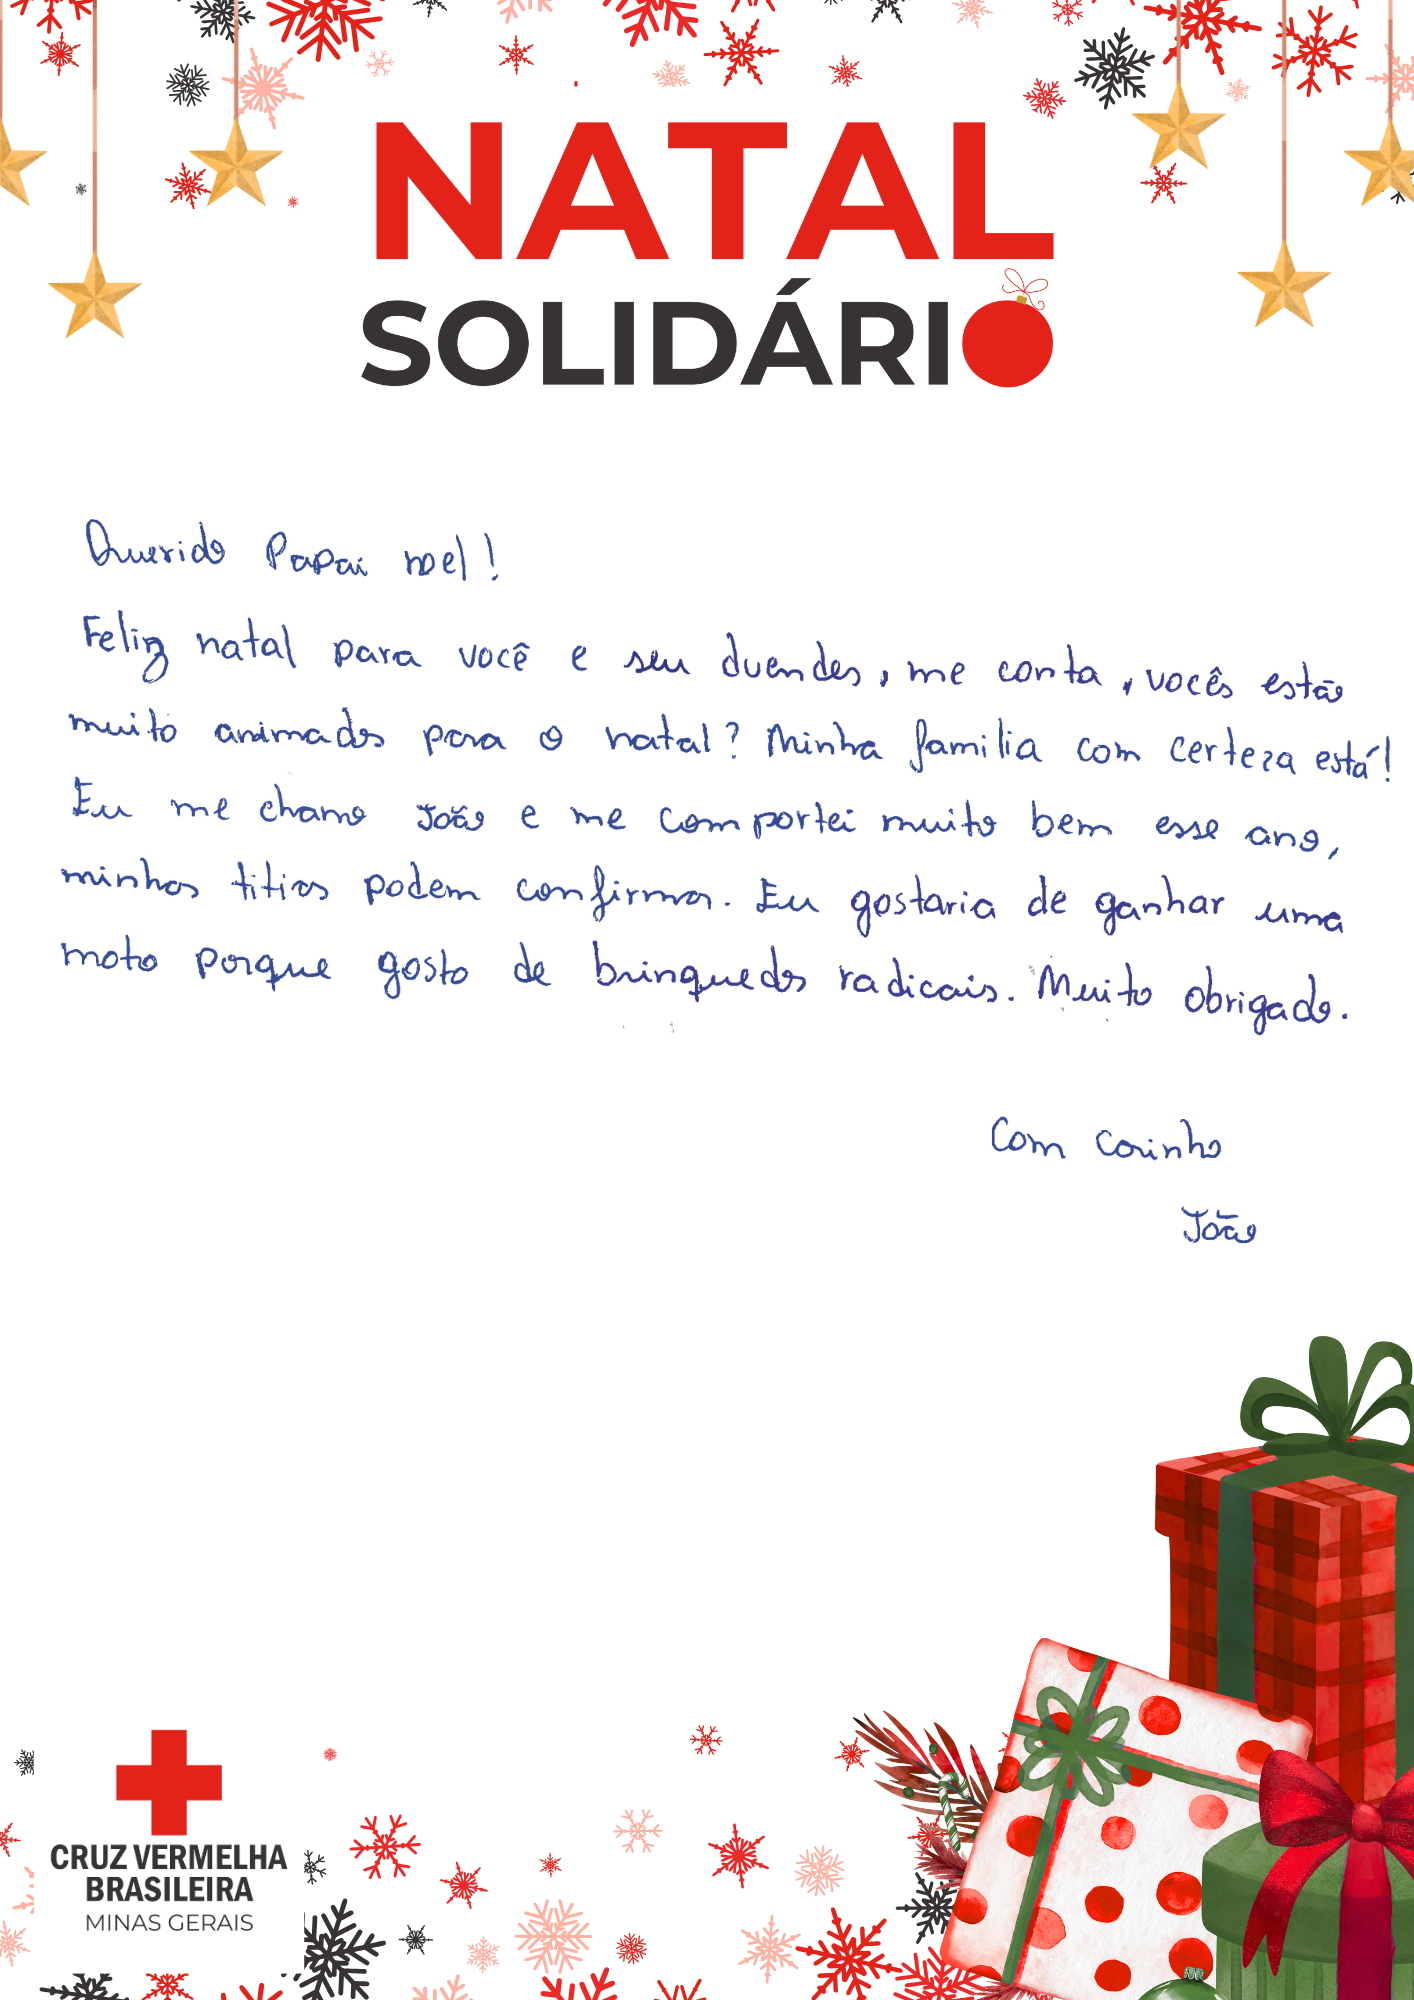 NATAL
SOLIDÁRIO
Querido Papai noel!
Feliz natal para você e seu duendes, me conta, vocês estão
muito animados para o natal? Minha família com certeza está!
Eu me chamo João e me comportei muito bem esse ano,
minhas titias podem confirmar. Eu gostaria de ganhar uma
moto porque gosto de brinquedos radicais. Muito obrigado.
Com carinho
João
CRUZ VERMELHA
BRASILEIRA
MINAS GERAIS